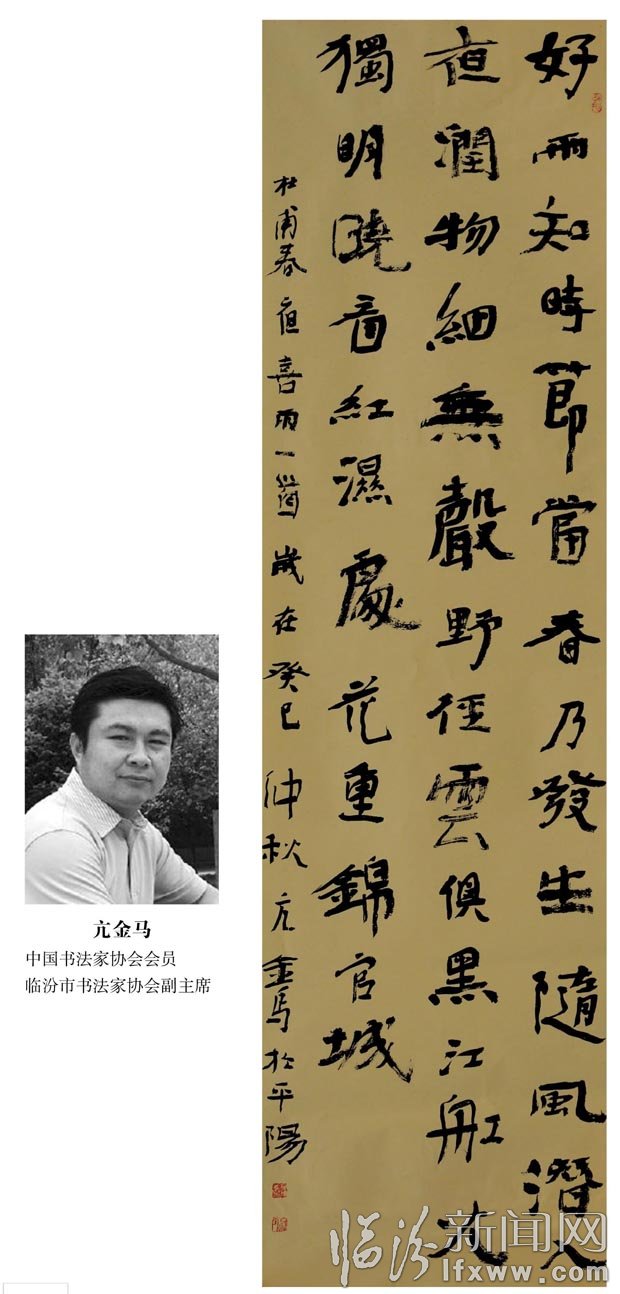 好雨知時節當春乃發生隨風潛入
夜潤物細無聲野徑雲俱黑江船火
獨明曉看紅濕處花重錦官城
杜甫春夜喜雨一首歲在癸巳仲秋亢金馬於平陽
亢金马
中国书法家协会会员
临汾市书法家协会副主席
临汾新闻网
lfxww.com